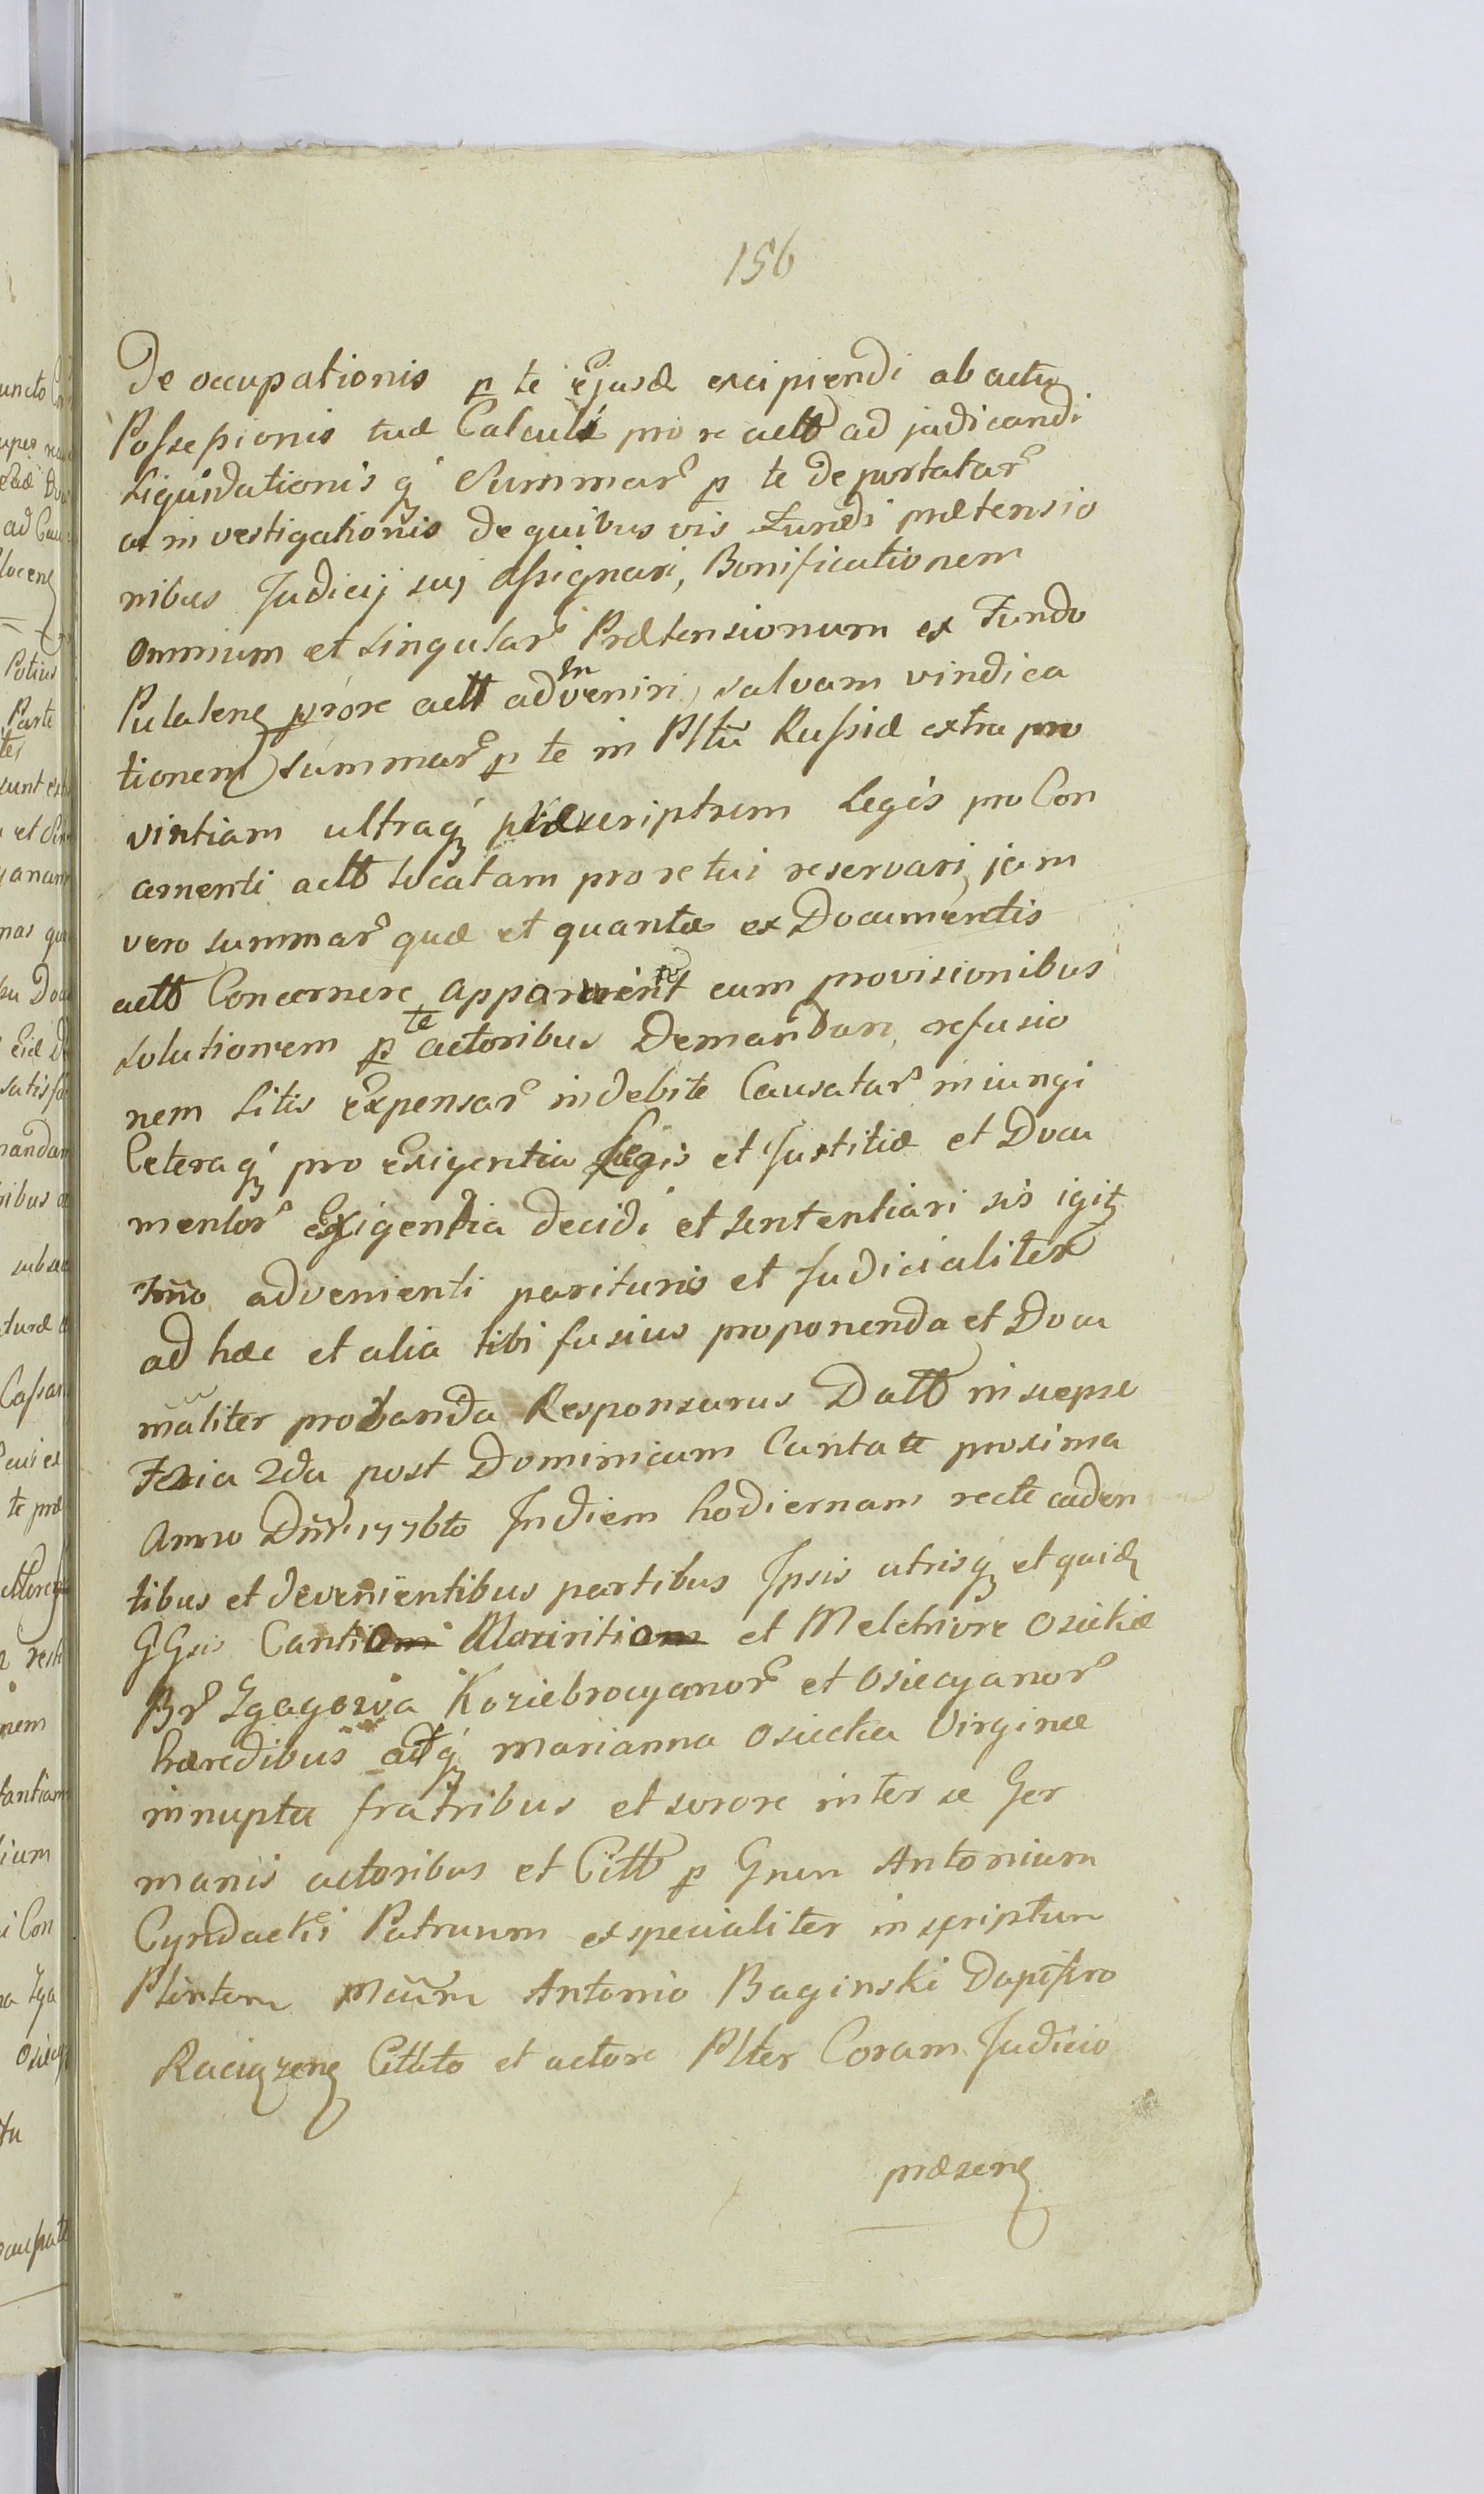 156
De occupationis p te Ejusd excipiendi ab actu
Possessionis tuæ Calculi pro re actt ad judicandi
Liquidationis q́ Summar p te deportatar
ac investigationis de quibus vis Fundi prætensio
nibus Judicij suj assignari, Bonificationem
omnium et singular Prætensionum ex Fundo
pro re actt advenirj, salvam vindica
tionem summar p te in Pltũ Russiæ extra pro
vintiam ultraq́ præscriptum Legis pro Con
amenti actt locatam pro re tui reservari jam
vero summar quæ et quantæ ex Documentis
actt Concernere cum provisionibus
solutionem p te actoribus Demandari, refusio
nem Litis Expensar indebite Causatar iniungi
Ceteraq́ pro Exigentia Legis et Justitiæ et Docu
mentor Exigentia decidi et sententiari sis igitʒ
Tm̃o advenienti pariturus et Judicialiter
ad hæc et alia tibi fusius proponenda et Docu
m̃aliter probanda Responsurus Datt in siepse
Feria 2da post Dominicam Cantate proxima
Anno Dñi 1776to In diem hodiernam recte caden
tibus et devenientibus partibus Ipsis utrisq́ et quid
GGsis Cantio Mauritio et Melchiore Osieckie
Br Zgagowa Koziebrocyanor et Osiecyanor
hæredibus adq́ Marianna Osiecka Virgine
innupta fratribus et sorore inter se Ger
manis actoribus et Citt p Gnun Antonium
Cyndacki Patruum et specialiter inscriptum
Plentem Antonio Baginski Dapifero
Raciązen Citato et actore Plter Coram Judicio
præsen